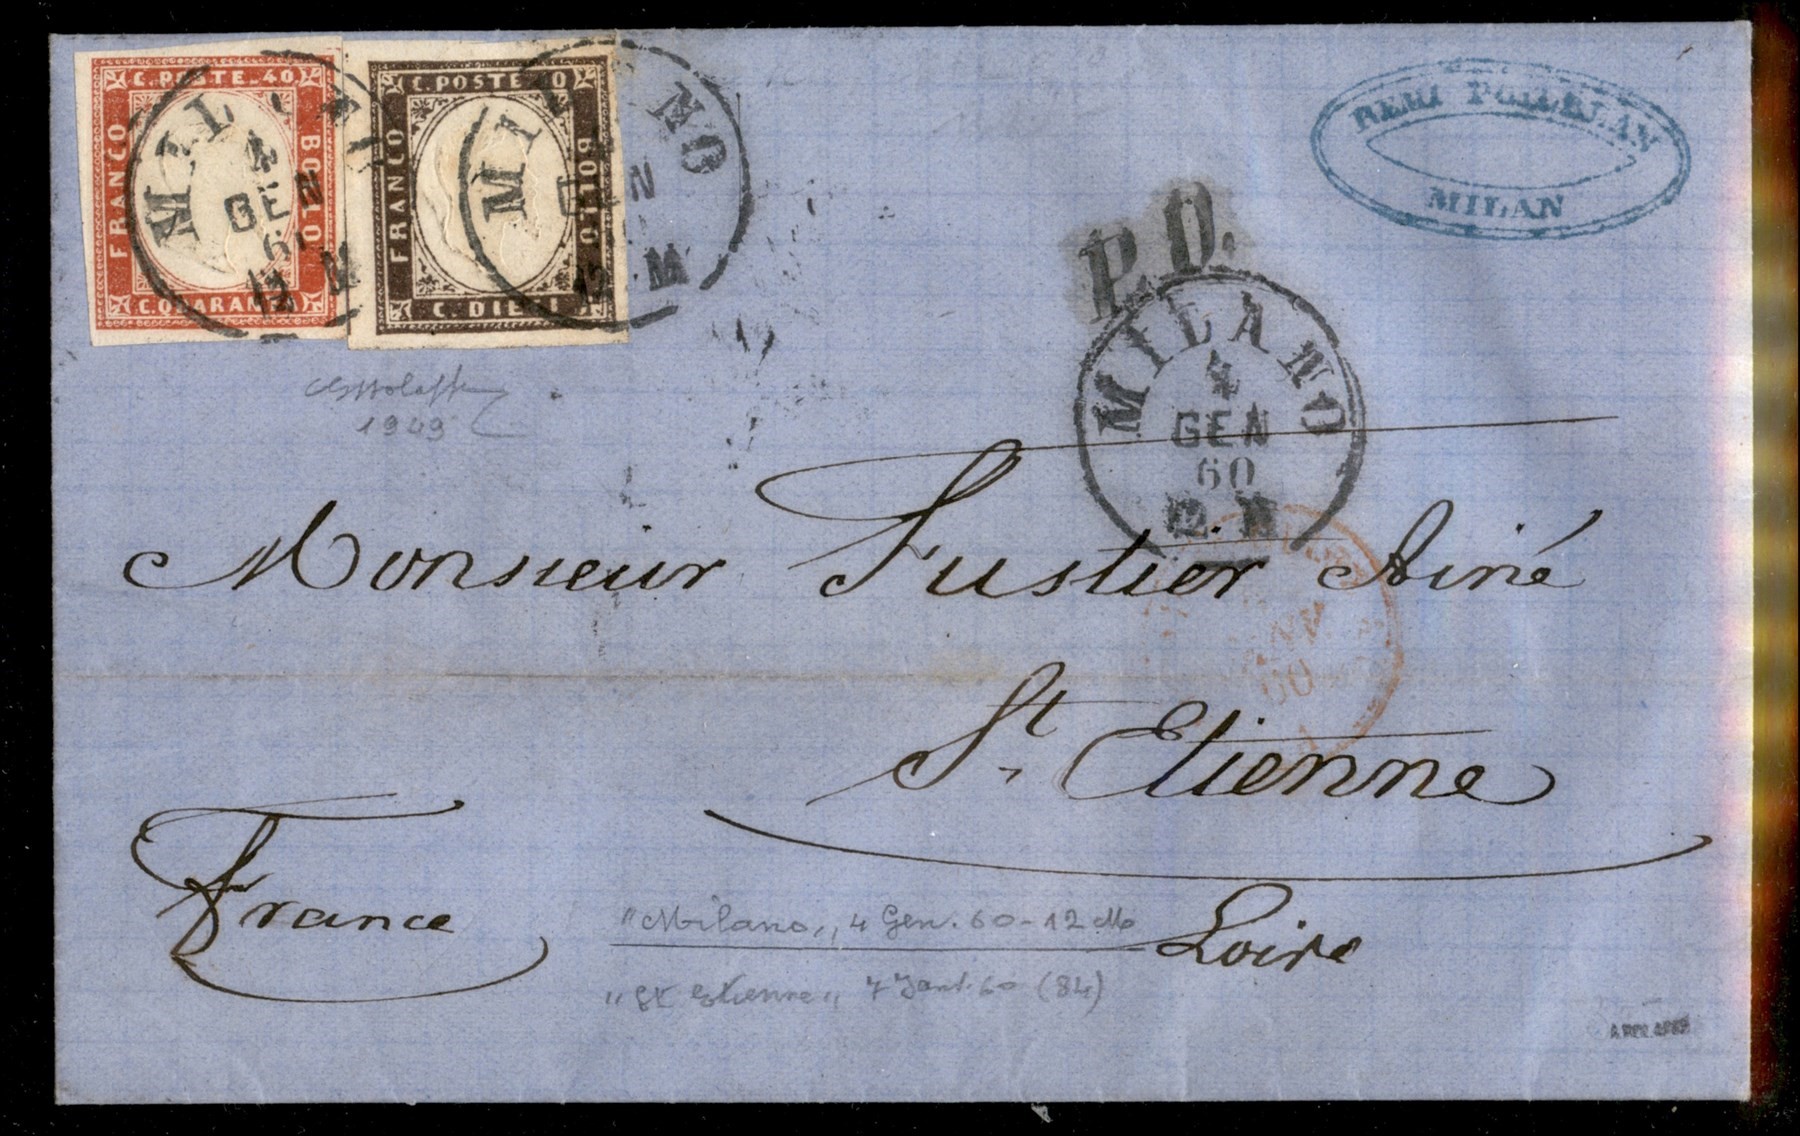 C. POSTE 40
FRANCO
BOLLO
C. QUARANTA
C. POSTE 10
FRANCO
BOLLO
C. DIECI
MILANO
4
GEN
60
12 M
MILANO
GEN
12 M
REMI
MILAN
P.D.
MILANO
4
GEN
60
12 M
1949
Monsieur Fustier Ainé
60
St. Etienne
France
"Milano" 4 Gen. 60 - 12 M
Loire
"St Etienne" 7 Janv. 60 (84)